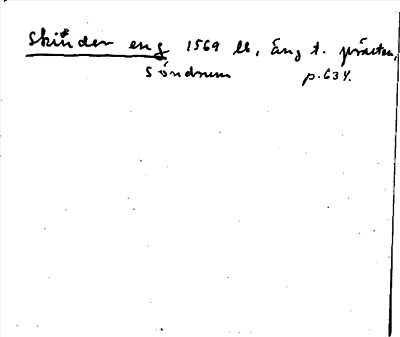 Skinder eng 1569 lb, äng t. prästen,
Söndrum p. 634.